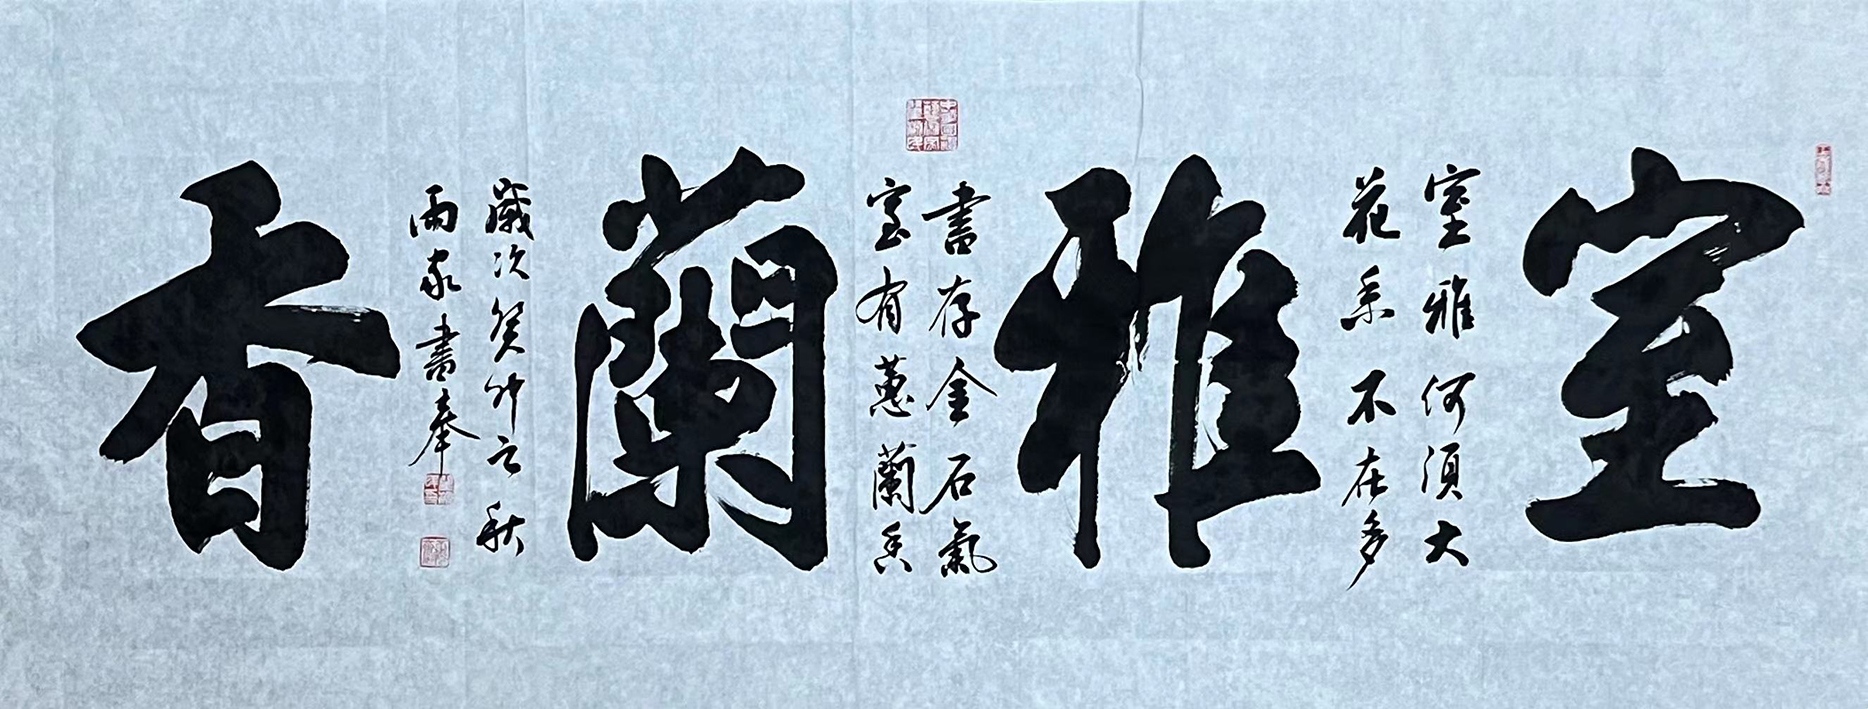 室雅蘭香
室雅何須大
花香不在多
書存金石氣
室有蕙蘭香
歲次癸卯之秋
雨家書奉